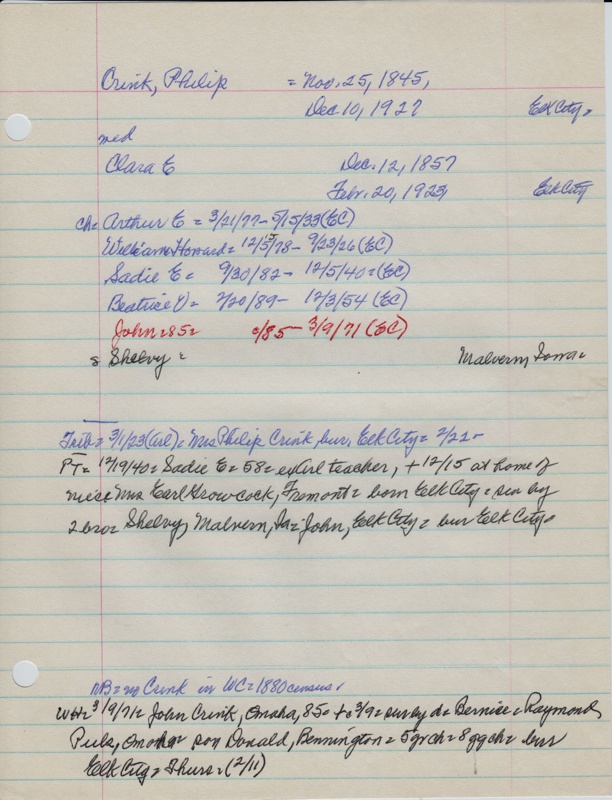 Crink, Philip = Nov. 25, 1845,
Dec 10, 1927 Elk City,
med
Clara E Dec. 12, 1857
Febr. 20, 1923 Elk City
ch= Arthur E = 3/21/77- 5/15/33 (EC)
William Howard = 12/5/78 - 9/23/26 (EC)
Sadie E = 9/30/82 - 12/5/40 = (EC)
Beatrice V = 2/20/89 - 12/3/54 (EC)
John = 85 = c/85 - 3/9/71 (EC)
s Shelvy = Malvern, Iowa =
Trib = 3/1/23 (Arl) = Mrs Philip Crink, bur, Elk City = 2/22 -
PT = 12/19/40 = Sadie E = 58 = ex Arl teacher, + 12/15 at home of
niece Mrs Earl Growcock, Fremont = born Elk City = sur by
2 bro = Shelvy, Malvern, Ia = John, Elk City = bur Elk City =
NB = no Crink in WC = 1880 census.
WH = 3/9/71 = John Crink, Omaha, 85 = + c 3/9 = sur by d = Bernice = Raymond
Omaha = son Donald, Bennington = 5 grch = 8 ggch = bur
Elk City = Thurs = (2/11)